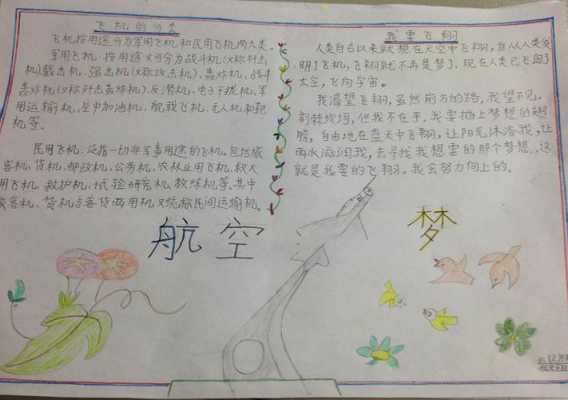 飞机的分类
飞机按用途分为军用飞机和民用飞机两大类。
军用飞机,按用途又可分为战斗机(又称歼击
机)截击机、强击机(又称攻击机)、轰炸机、战斗
轰炸机(又称歼击轰炸机)、反潜机、电子干扰机、军
用运输机、空中加油机、舰载飞机、无人机和靶
机等。
民用飞机,泛指一切非军事用途的飞机,包括旅
客机、货机、邮政机、公务机、农林业用飞机、救火
用飞机、救护机、试验研究机、教练机等。其中
旅客机、货机与客货两用机又统称民间运输机。
我要飞翔
人类自古以来就想在天空中飞翔,自从人类发
明了飞机,飞翔就不再是梦了,现在人类已飞向了
太空,飞向宇宙。
我渴望飞翔,虽然前方的路,我望不见,
荆棘残垣,但我不在乎,我要插上梦想的翅
膀,自由地在蓝天中飞翔,让阳光沐浴我,让
雨水滋润我,去寻找我想要的那个梦想,这
就是我要的飞翔。我会努力向上的。
航空
梦